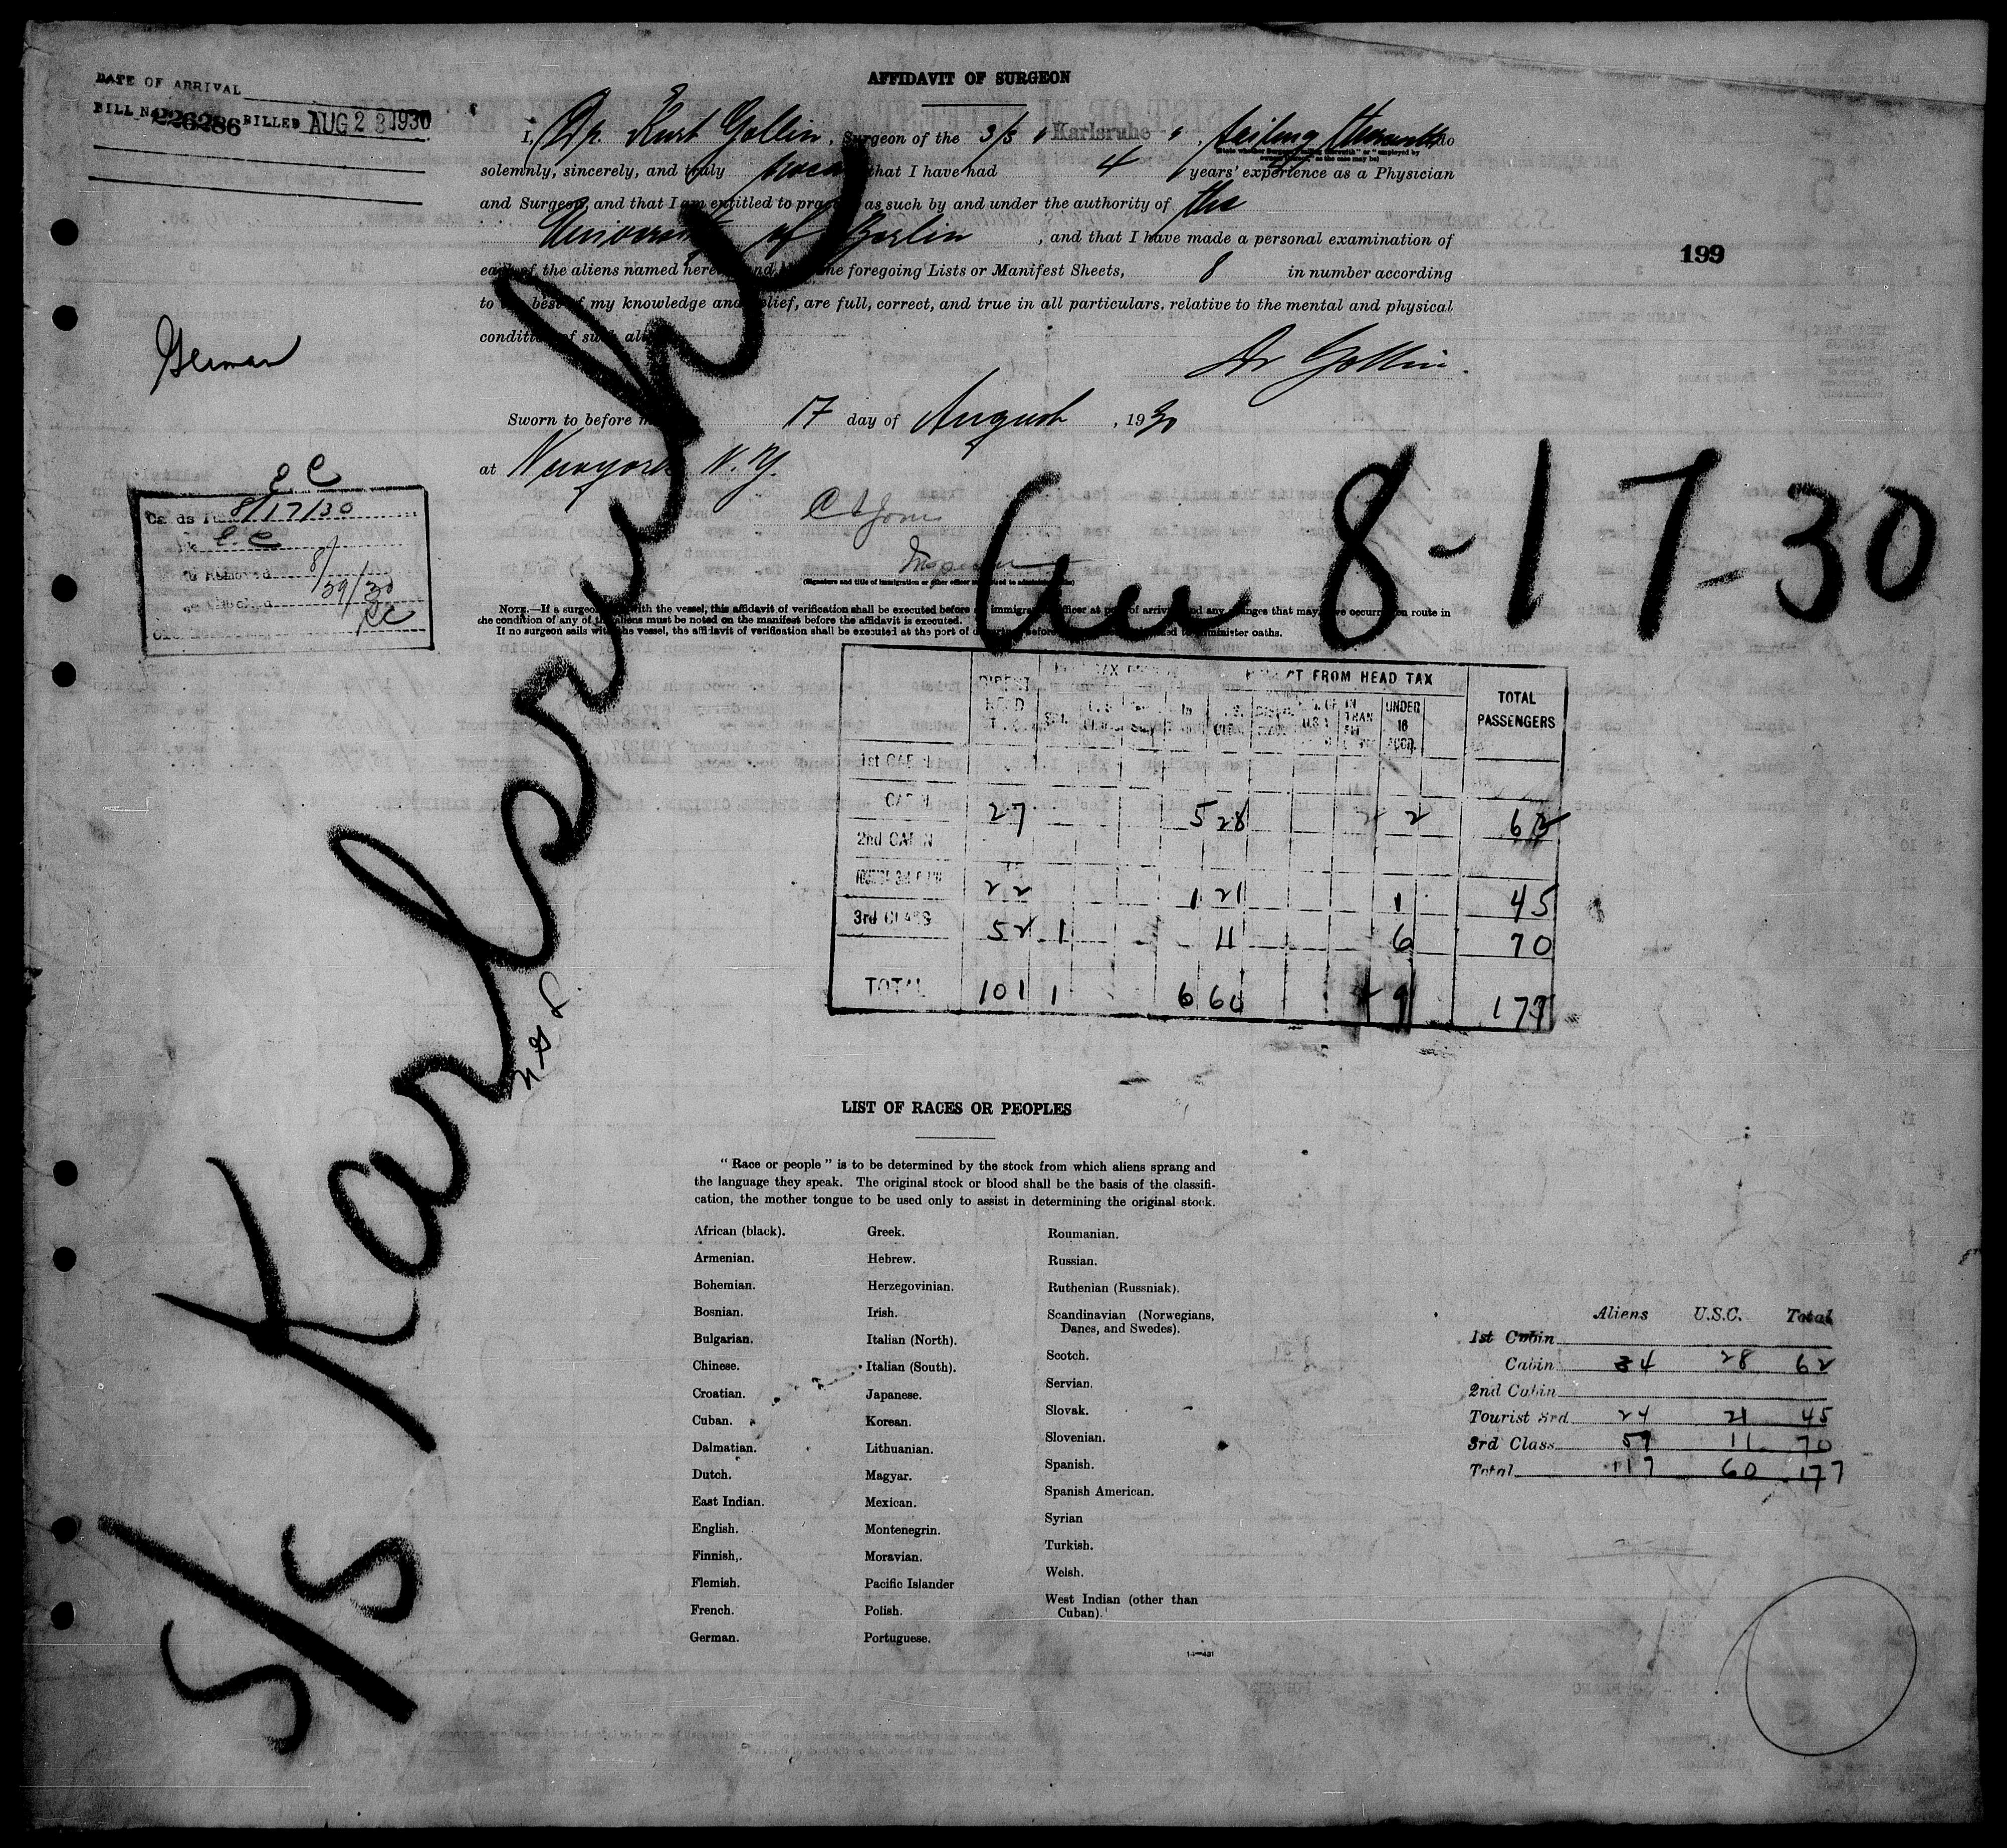 DATE OF ARRIVAL
BILL No. 226286 BILLED AUG 23 1930
AFFIDAVIT OF SURGEON
I, Dr. Kurt Gollin, Surgeon of the S/S "Karlsruhe", sailing therewith do
(State whether Surgeon "sailing therewith" or "employed by owners thereof," as the case may be)
solemnly, sincerely, and truly swear that I have had 4 years' experience as a Physician
and Surgeon, and that I am entitled to practice as such by and under the authority of the
University of Berlin, and that I have made a personal examination of
each of the aliens named herein and the foregoing Lists or Manifest Sheets, 8 in number according
to the best of my knowledge and belief, are full, correct, and true in all particulars, relative to the mental and physical
condition of such aliens
199
German
Dr Gollin.
Sworn to before me 17 day of August, 1930
at Newyork N.Y.
Inspector
(Signature and title of immigration or other officer authorized to administer oaths)
NOTE.—If a surgeon with the vessel, this affidavit of verification shall be executed before an immigration officer at port of arrival and any changes that may have occurred en route in
the condition of any of the aliens must be noted on the manifest before the affidavit is executed.
If no surgeon sails with the vessel, the affidavit of verification shall be executed at the port of departure before administer oaths.
C C
Cards 8/17/30
C. C
Removed 8/
29/30
S/S Karlsruhe
8-17-30
EXEMPT FROM HEAD TAX
TOTAL PASSENGERS
UNDER 16 ACCD.
1st CABIN
CABIN 27 5 28 2 62
2nd CABIN
22 1 21 1 45
3rd CLASS 52 1 11 6 70
TOTAL 101 1 6 60 9 177
LIST OF RACES OR PEOPLES
"Race or people" is to be determined by the stock from which aliens sprang and
the language they speak. The original stock or blood shall be the basis of the classifi-
cation, the mother tongue to be used only to assist in determining the original stock.
African (black).
Armenian.
Bohemian.
Bosnian.
Bulgarian.
Chinese.
Croatian.
Cuban.
Dalmatian.
Dutch.
East Indian.
English.
Finnish.
Flemish.
French.
German.
Greek.
Hebrew.
Herzegovinian.
Irish.
Italian (North).
Italian (South).
Japanese.
Korean.
Lithuanian.
Magyar.
Mexican.
Montenegrin.
Moravian.
Pacific Islander
Polish.
Portuguese.
Roumanian.
Russian.
Ruthenian (Russniak).
Scandinavian (Norwegians,
Danes, and Swedes).
Scotch.
Servian.
Slovak.
Slovenian.
Spanish.
Spanish American.
Syrian
Turkish.
Welsh.
West Indian (other than
Cuban).
Aliens U.S.C. Total
1st Cabin
Cabin 34 28 62
2nd Cabin
Tourist 3rd 24 21 45
3rd Class 59 11 70
Total 117 60 177